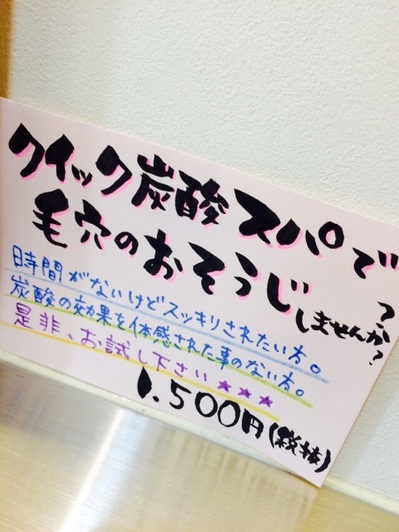 クイック炭酸スパで
毛穴のおそうじしませんか?
時間がないけどスッキリされたい方。
炭酸の効果を体感された事のない方。
是非、お試し下さい★★★
1.500円(税抜)